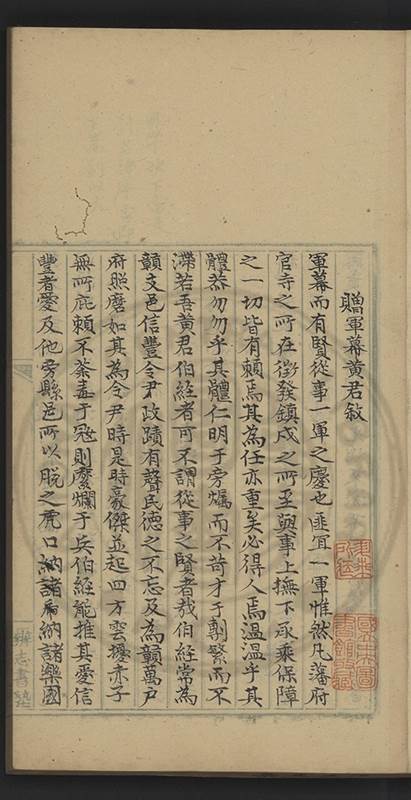 贈軍幕黃君敘
軍幕而有賢從事一軍之慶也匪冝一軍惟然凡藩府
官寺之所在徵發鎮戍之所至與事上撫下承乘保障
之一切皆有賴焉其為任亦重矣必得人焉溫溫乎其
體恭勿勿乎其體仁明于旁燭而不苛才于剸繁而不
滯若吾黃君伯經者可不謂從事之賢者哉伯經常為
贛支邑信豐令尹政蹟有聲民德之不忘及為贛萬戶
府照磨如其為令尹時是時豪傑並起四方雲擾赤子
無所庇賴不荼毒于冦則糜爛于兵伯經能推其愛信
豐者愛及他旁縣邑所以脫之虎口納諸
納諸樂國